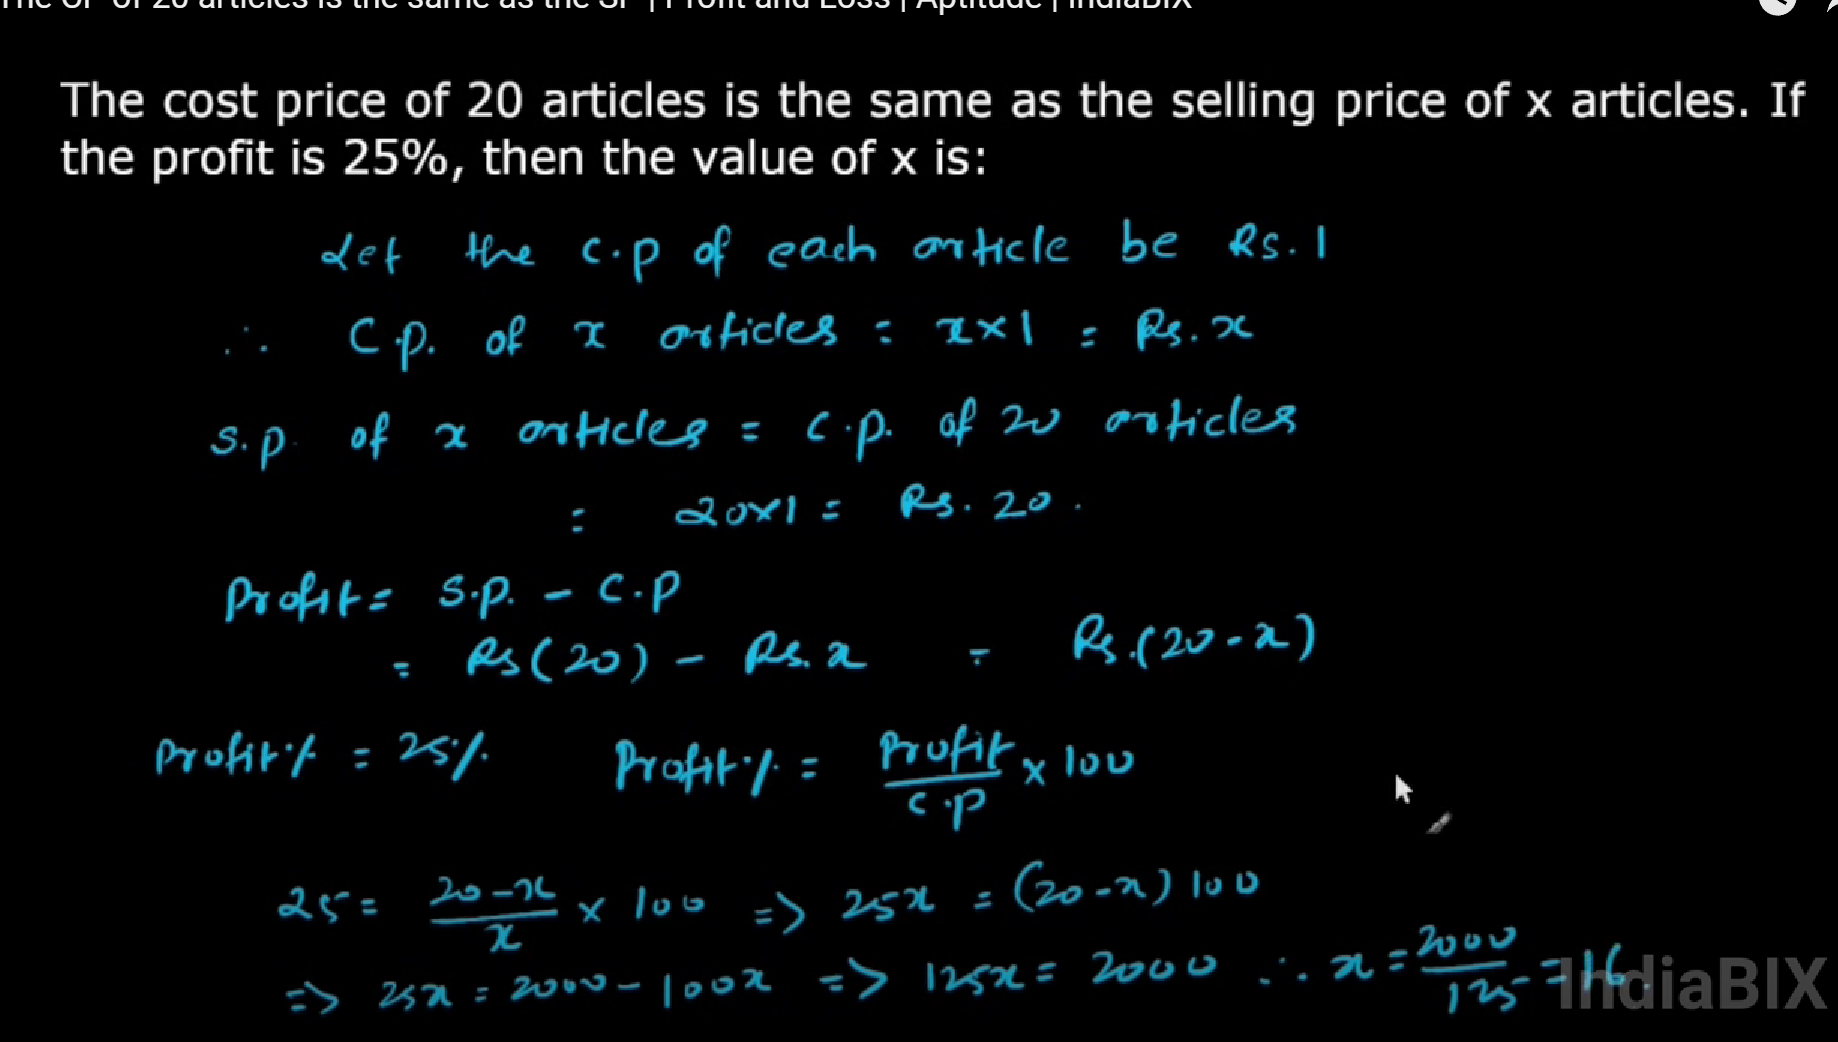 The CP of 20 articles is the same as the SP | Profit and Loss | Aptitude | IndiaBIX
The cost price of 20 articles is the same as the selling price of x articles. If
the profit is 25%, then the value of x is:
Let the C.P of each article be Rs. 1
∴ C.P. of x articles = x×1 = Rs. x
S.P. of x articles = C.P. of 20 articles
= 20×1 = Rs. 20.
Profit = S.P. - C.P
= Rs(20) - Rs. x = Rs.(20-x)
Profit% = 25% Profit% = Profit/C.P × 100
25 = 20-x/x × 100 => 25x = (20-x)100
=> 25x = 2000-100x => 125x = 2000 ∴ x = 2000/125 = 16.
IndiaBIX